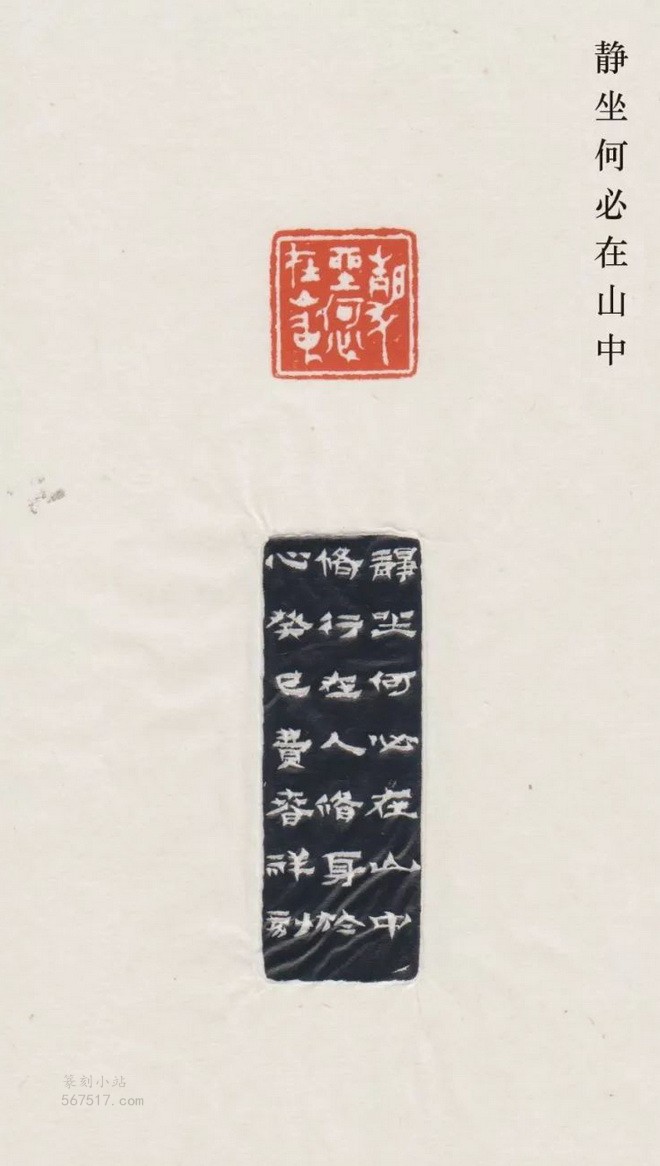 静坐何必在山中
靜坐何必在山中
靜坐何必在山中
修行在人修身於
心癸巳費春祥刻
篆刻小站
567517.com